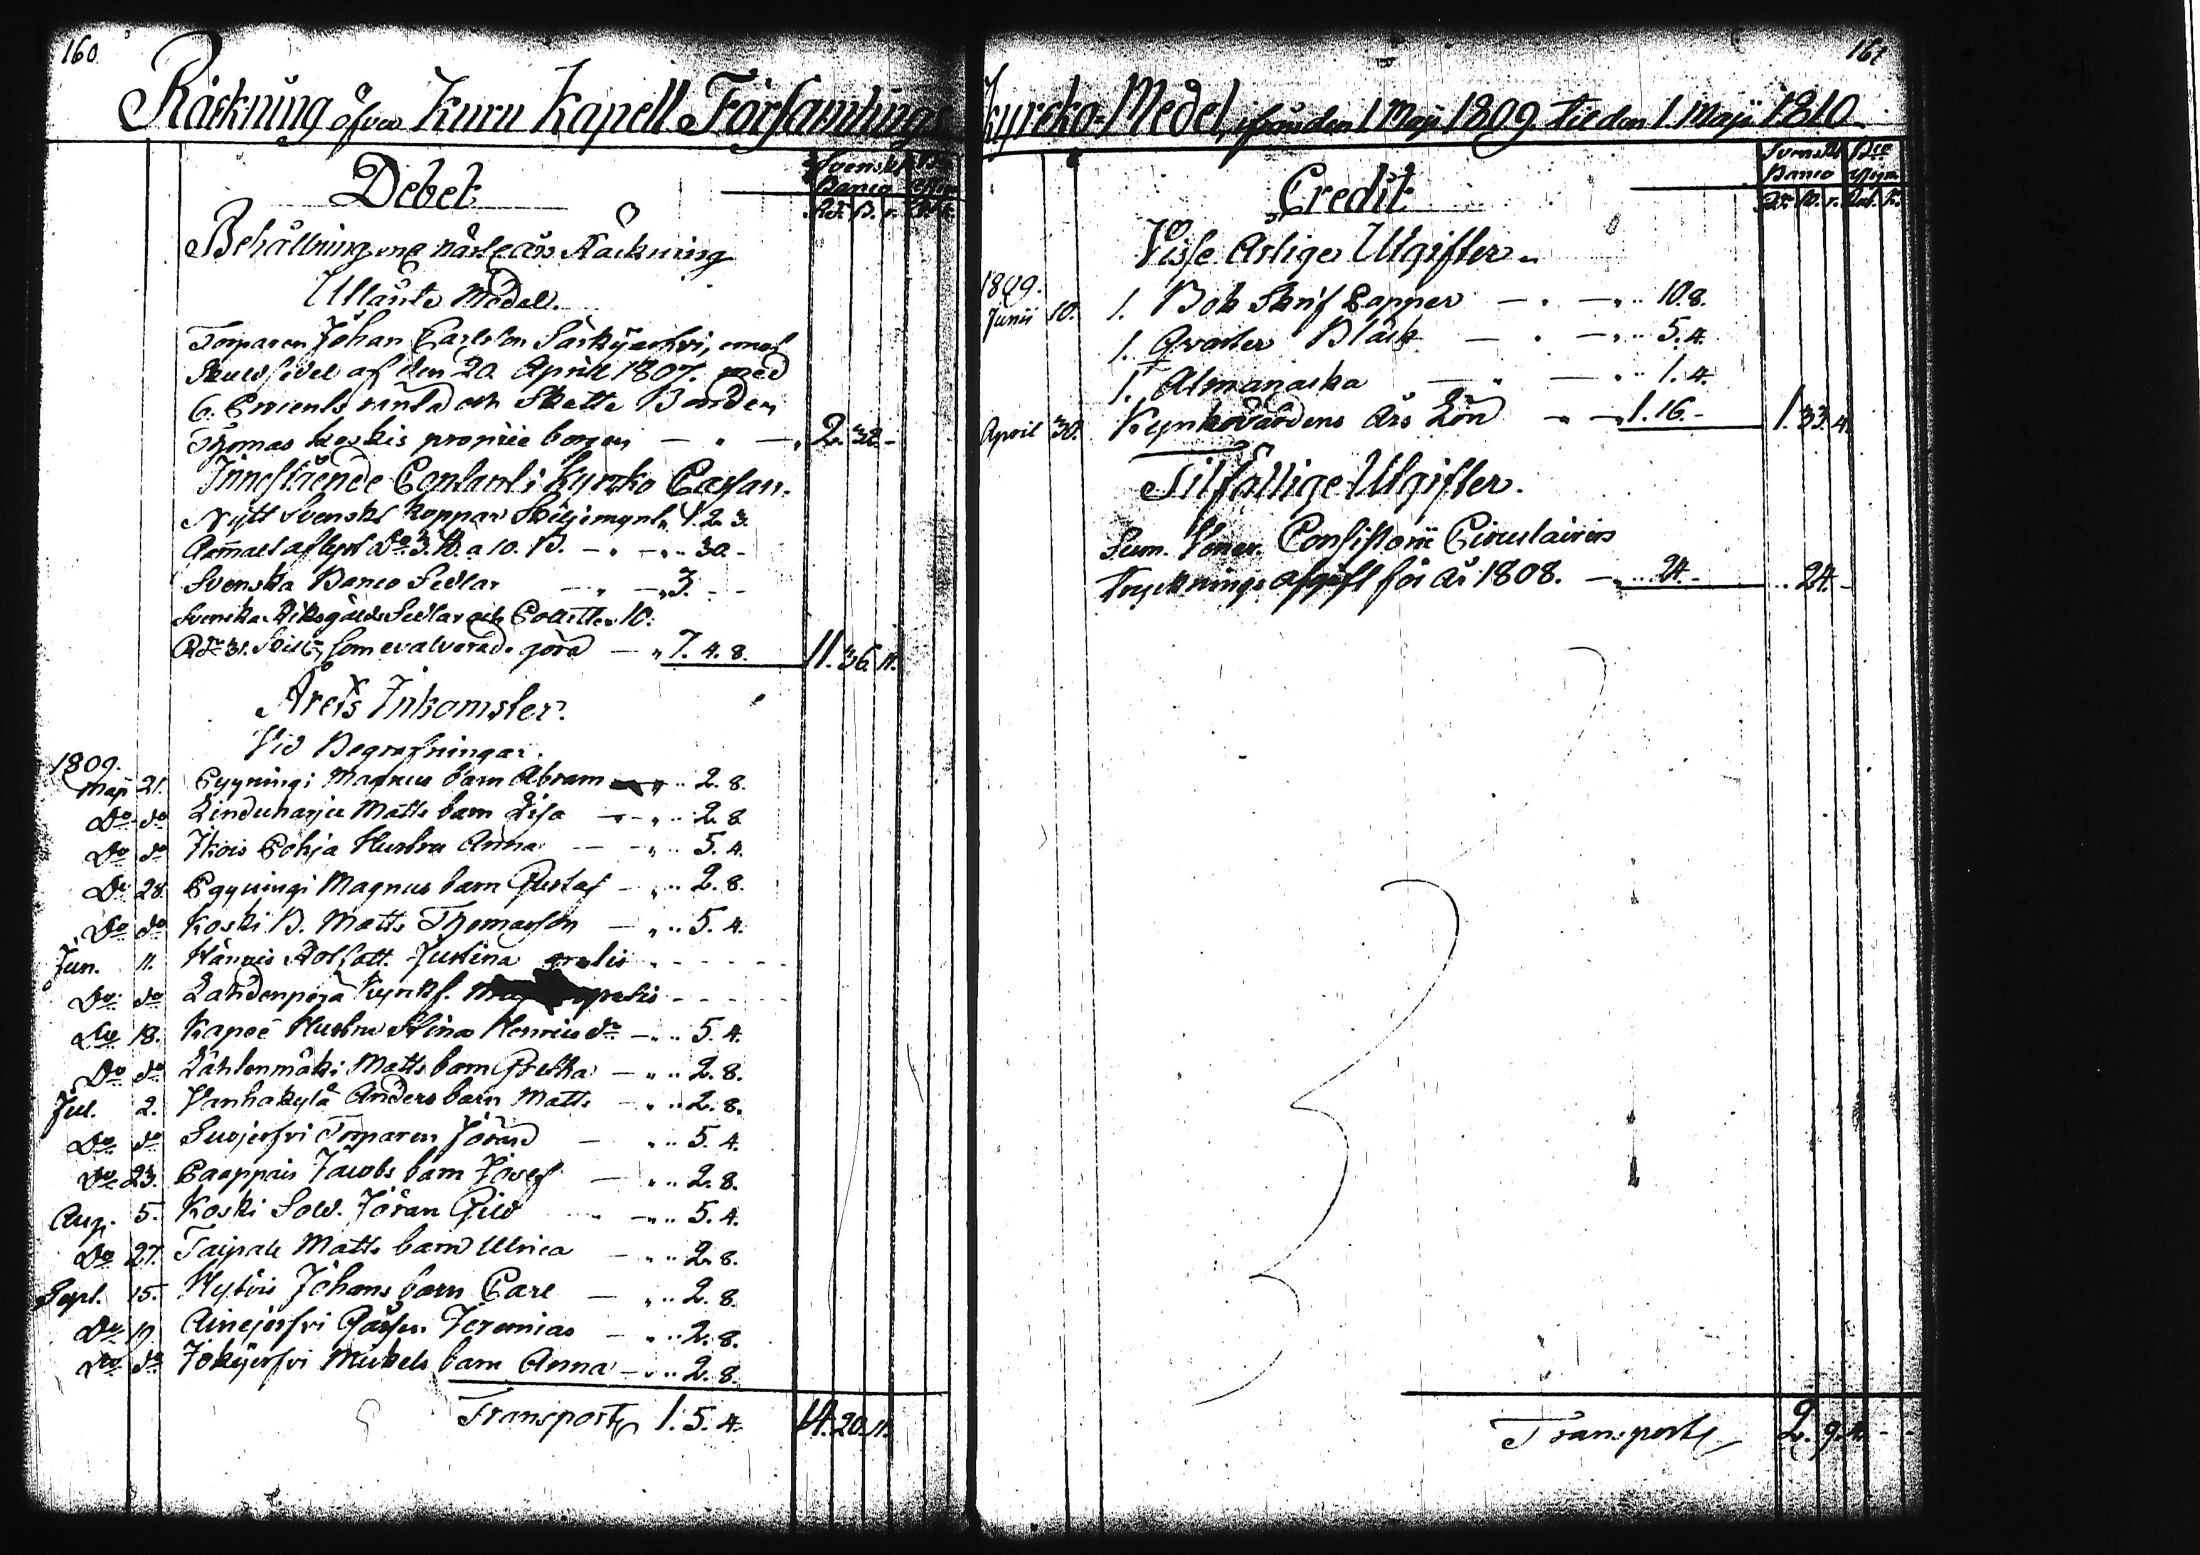 160.
Räckning öfver Kuru Kapell Församlings
Debet
Svenskt
Banco
Rdr ß. r.
Behållning enl. närl. års Räckning
Utlånte Medel.
Torparen Johan Carlsson Särkijerfvi, emot
Skuldsedel af den 20 April 1807. med
6. Procents ränta och Skatte Bonden
Thomas Koskis proprie borgen — " — " 2. 32 -
Innestående Contant i Kyrko Cassan.
Nytt Svenskt Koppar Skiljemynt " 1. 2. 3.
Gammalt aflyst Do 3. ß. a 10. ß. — " — " .. 30 -
Svenska Banco Sedlar — " — " 3. - -
Svenska Riksgälds Sedlar och Creditter 10.
Rdr 31. Skil. som evalverade göra — " 7. 4. 8. 11. 36. 11.
Årets Inkomster.
Vid Begrafningar.
1809.
Maji 21. Pyyningi Magnus barn Abram " .. 2. 8.
Do do Linduharju Matts barn Lisa — " .. 2. 8.
Do do Itkois Pohja Hustru Anna — " .. 5. 4.
Do 28. Pyyningi Magnus barn Gustaf — " .. 2. 8.
Do do Koski B. Matts Thomasson — " .. 5. 4.
Jun. 11. Hännis Rotfatt. Justina gratis - - - -
Do do Lahdenperä gratis - - - -
Do 18. Kapeé Hustru Stina Henricsdr — " .. 5. 4.
Do do Lähtenmäki Matts barn Gretha — " .. 2. 8.
Jul. 2. Vanhakylä Anders barn Matts — " .. 2. 8.
Do do Suojerfvi Torparen Jöran — " .. 5. 4.
Do 23. Paappais Jacobs barn Josef — " .. 2. 8.
Aug. 5. Koski Sold. Jöran Gild — " .. 5. 4.
Do 27. Taipale Matts barn Ulrica — " .. 2. 8.
Sept. 15. Hytöis Johans barn Carl — " .. 2. 8.
Do 19. Ainejerfvi Gåssen Jeremias — " .. 2. 8.
Do do Jokijerfvi Mickels barn Anna — " .. 2. 8.
Transport 1. 5. 4. 14. 20. 11.
161
Kyrcko-Medel, ifrån den 1. Maji 1809. till den 1. Maji 1810.
Credit
Svenskt
Banco
Rdr ß. r. Rub. K.
Visse Årlige Utgifter.
1809.
Junii 10. 1. Bok Skrif Papper — " — " .. 10. 8.
1. Qvarter Bläck — " — " .. 5. 4.
1. Almanacka — " — " .. 1. 4.
April 30. Kyrkovärdens Års Lön " — " 1. 16. - 1. 33. 4.
Tilfällige Utgifter.
Sum. Vener. Consistorii Circulairers
Tryckningsafgift för År 1808. — " .. 24. - .. 24. -
Transport 2. 9. 4. - -